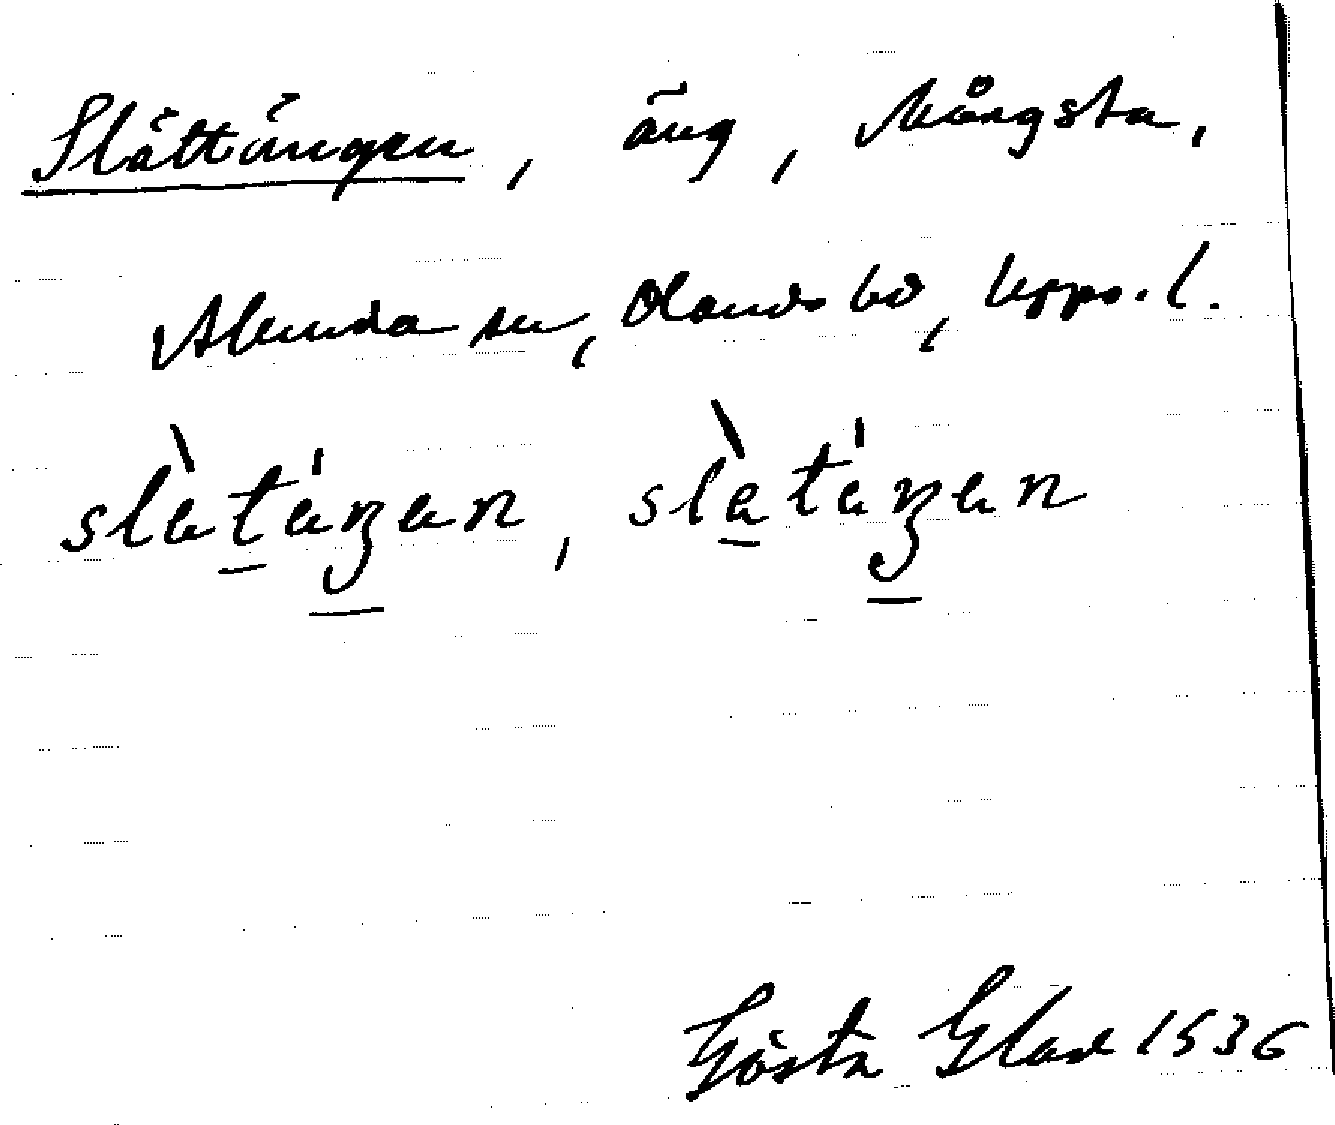 Slättängen, äng, Mångsta,
Alunda sn, Olands hd, Upps. l.
slὰtáŋan, slὰtáŋan
Gösta Glad 1936